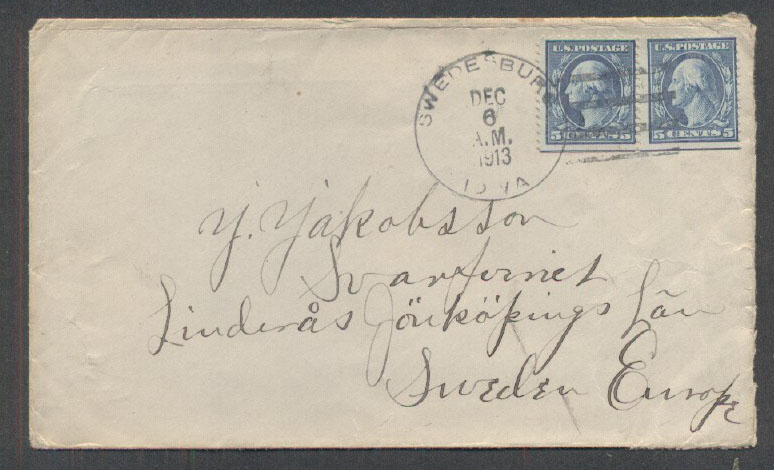 U.S. POSTAGE U.S. POSTAGE
5 CENTS 5 5 CENTS 5
SWEDESBURG
DEC
6
A.M.
1913
IOWA
J. Jakobsson
Linderås Jönköpings Län
Sweden Europe